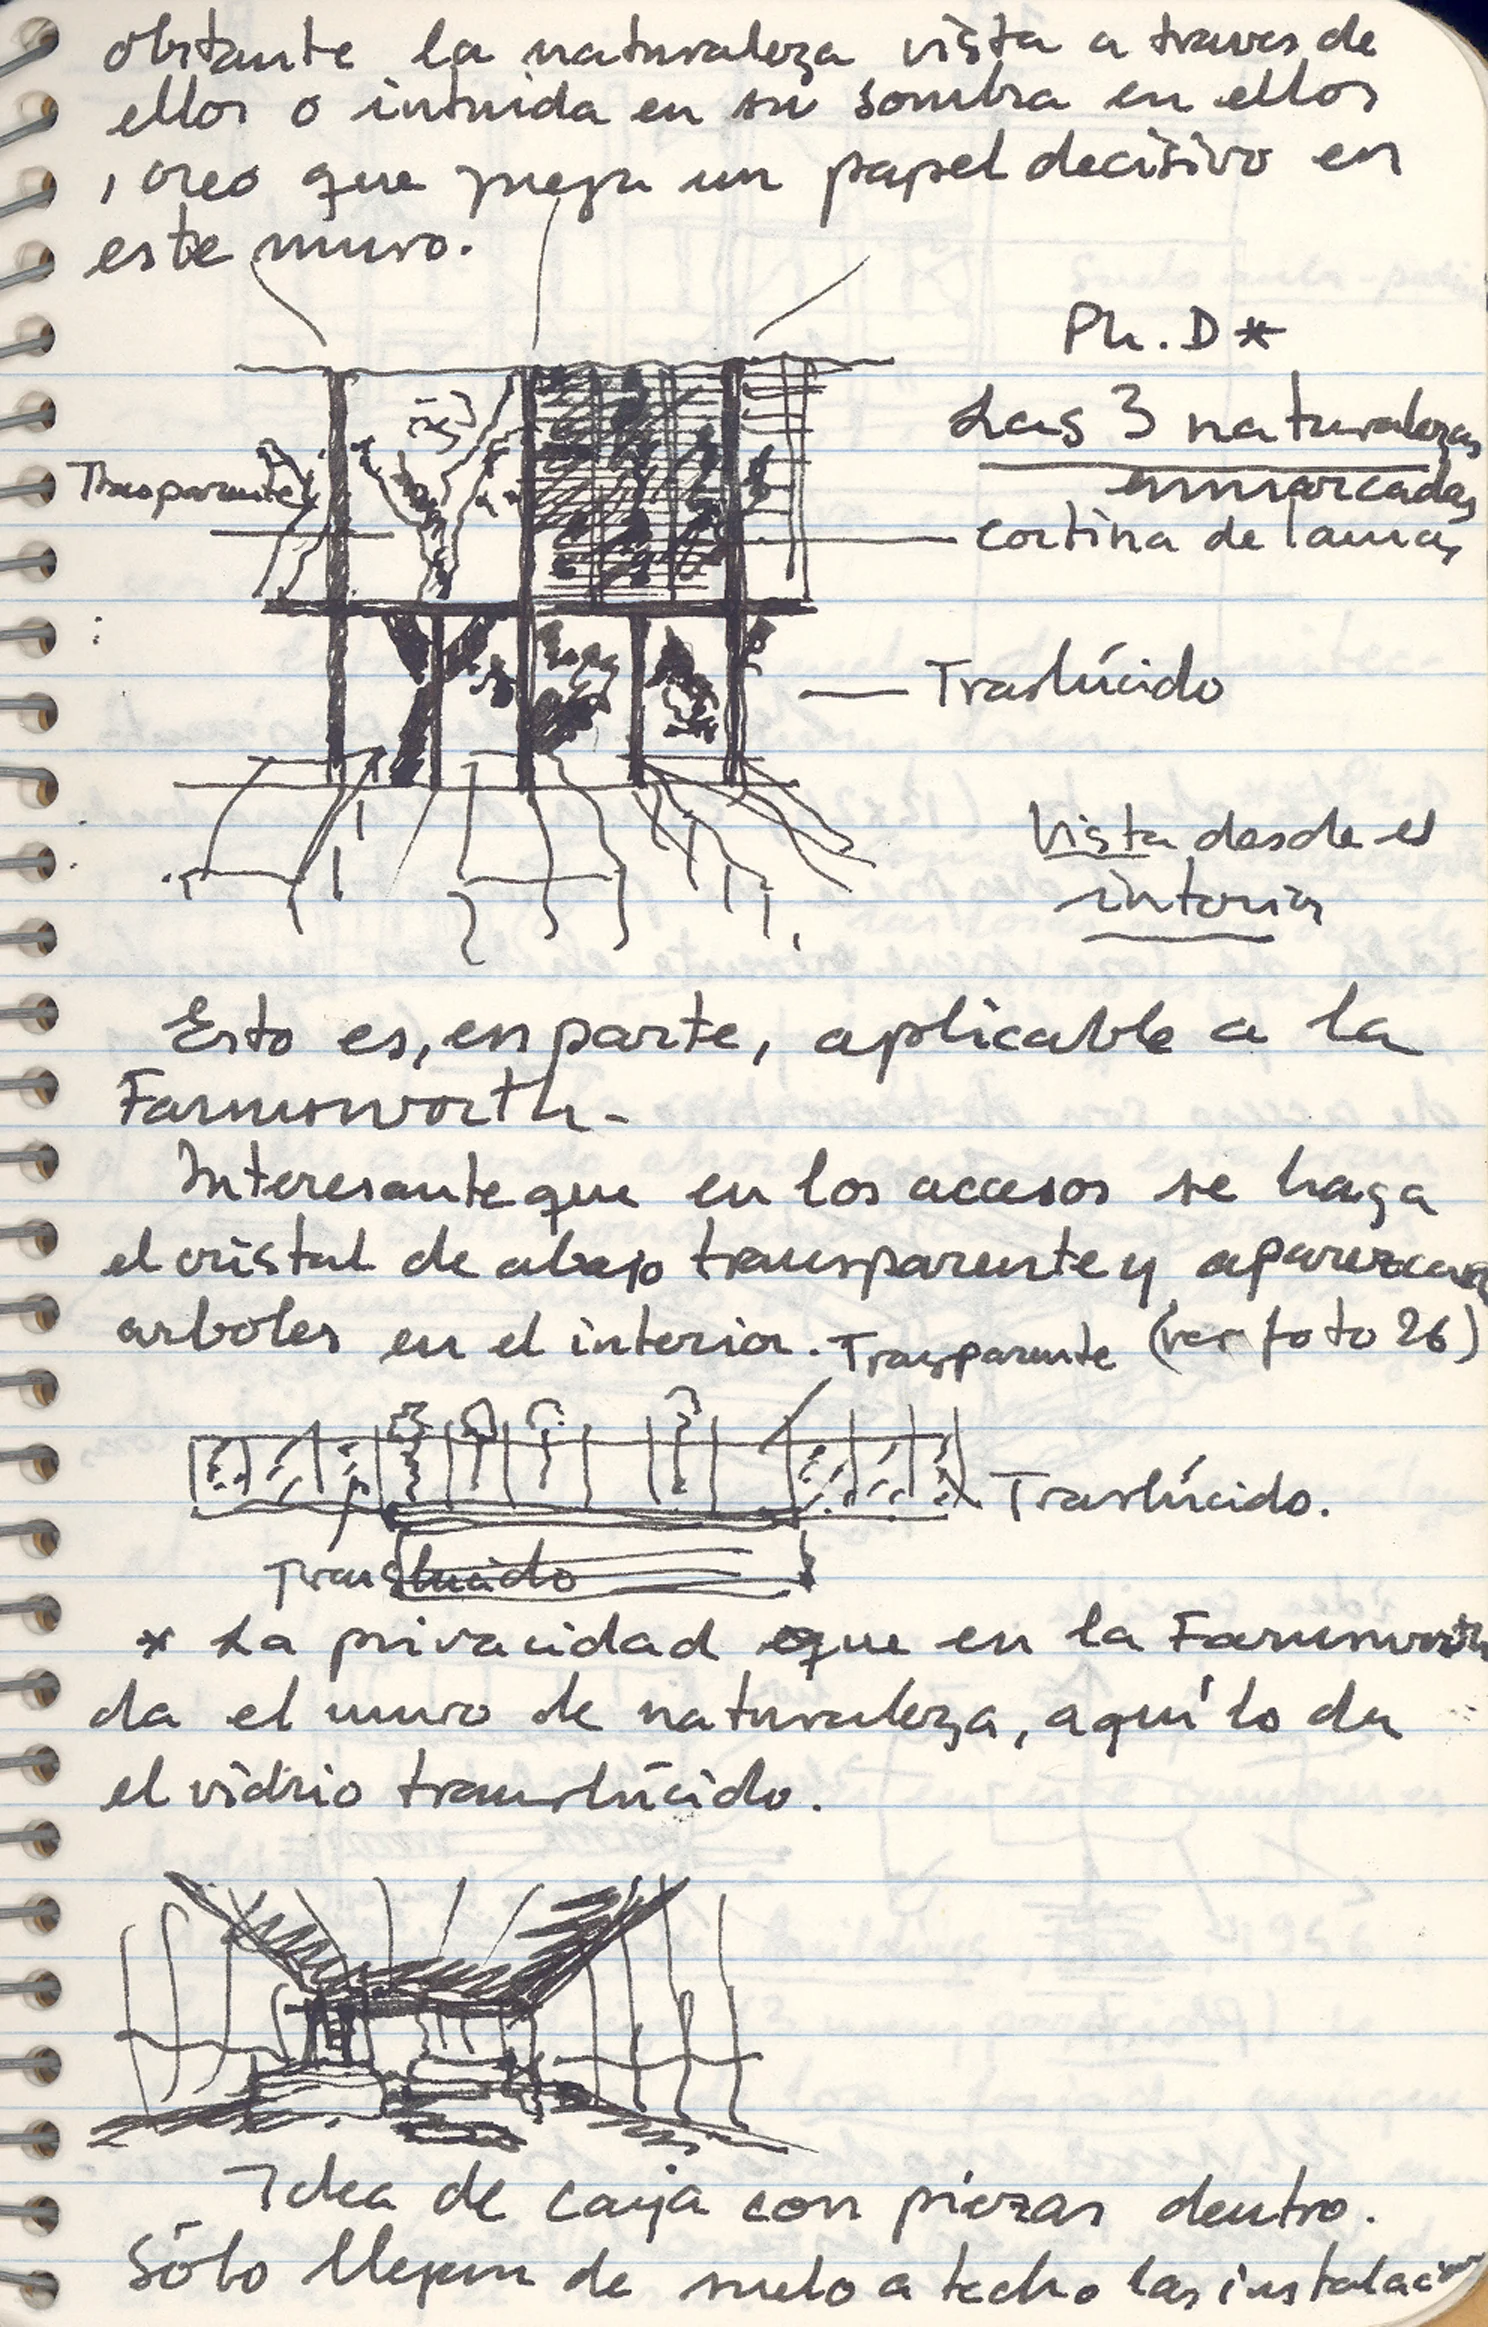 obstante la naturaleza vista a traves de
ellos o intuida en su sombra en ellos
, creo que juega un papel decisivo en
este muro.
Ph.D*
Las 3 naturalezas
enmarcadas
Trasparente
cortina de lamas
Traslúcido
Vista desde el
interior
Esto es, en parte, aplicable a la
Farnsworth-
Interesante que en los accesos se haga
el cristal de abajo transparente y aparezcan
arboles en el interior. (ver foto 26)
Trasparente
Traslúcido.
Translucido
* La privacidad que en la Farnsworth
da el muro de naturaleza, aquí lo da
el vidrio translúcido.
Idea de caja con piezas dentro.
Sólo llegan de suelo a techo las instalacion